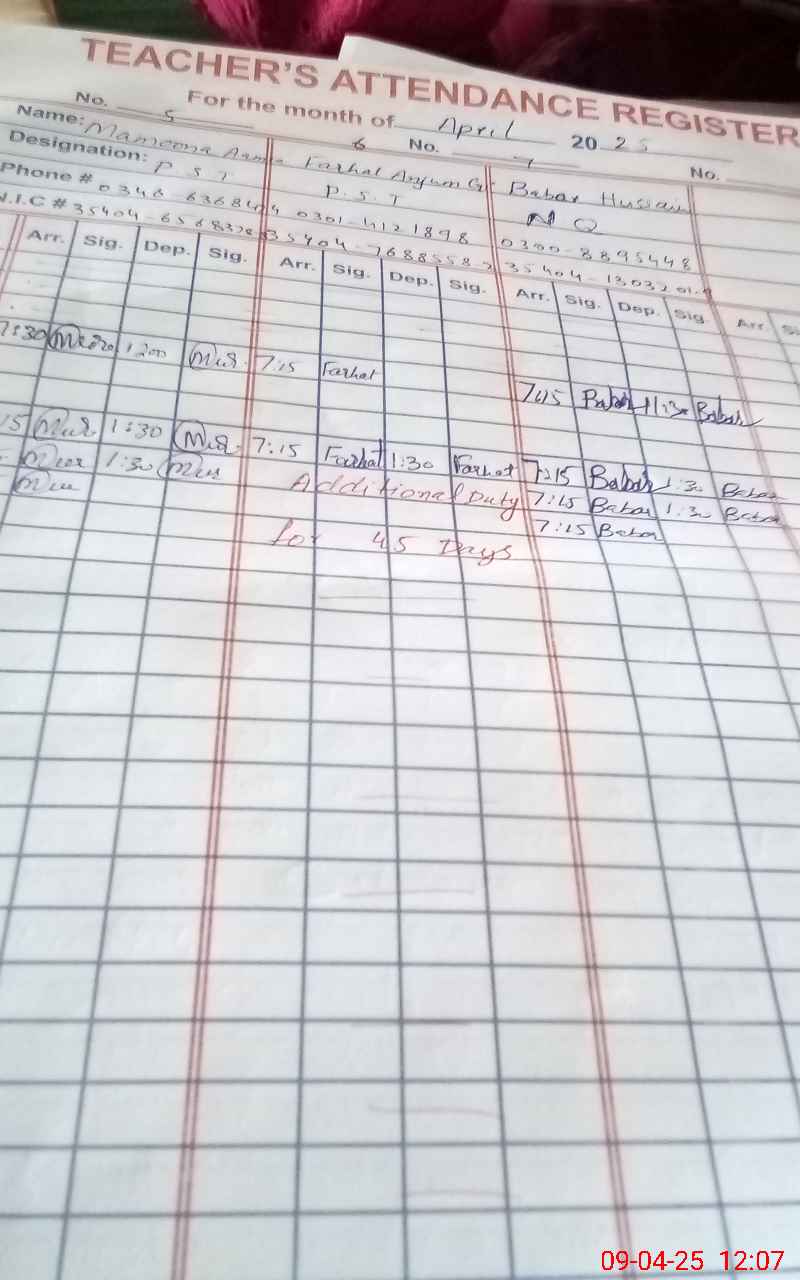 TEACHER'S ATTENDANCE REGISTER
For the month of April 2025
No. 5 6 No. 7 No.
Name: Mamoona Farhat Anjum Babar Hussain
Designation: P S T P.S.T N Q
Phone # 0346 0301-4121898 0300-8895448
N.I.C # 35404 35404-7688558 35404-1303201-9
Arr. Sig. Dep. Sig. Arr. Sig. Dep. Sig. Arr. Sig. Dep. Sig. Arr.
7:30 1:00 7:15 Farhat
7:15 Babar 11:30 Babar
15 1:30 7:15 Farhat 1:30 Farhat 7:15 Babar 1:30 Babar
1:30 Additional Duty 7:15 Babar 1:30 Babar
for 45 Days 7:15 Babar
09-04-25 12:07